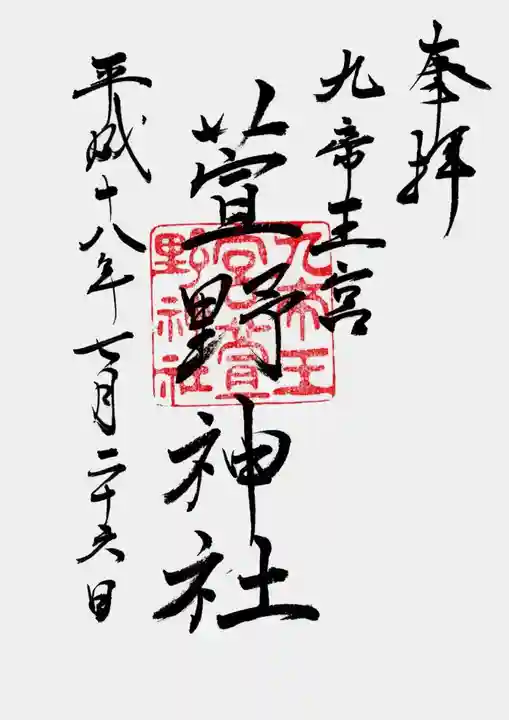 奉拝
九帝王宮
萱野神社
平成十八年七月二十六日
九帝王
宮萱
野神社